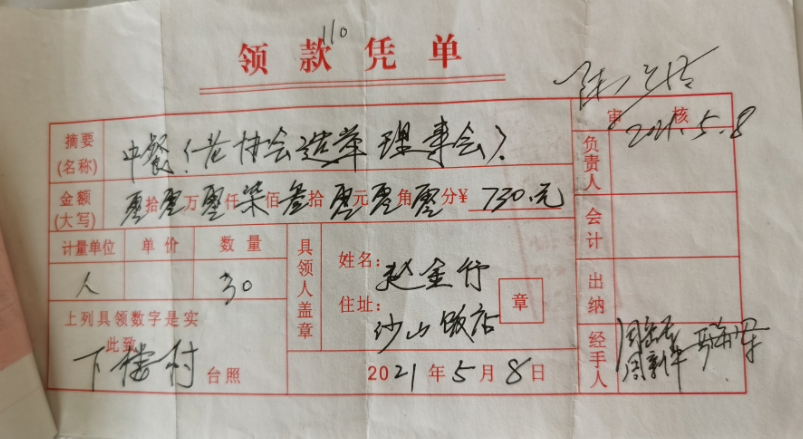 110
领款凭单
2021.5.8
摘要
(名称)
中餐(老协会选举理事会)
审核
负责人
金额
(大写)
零拾零万零仟柒佰叁拾零元零角零分¥730.元
会计
计量单位 单价 数量
人 30
具领人盖章
姓名:赵金行
住址:沙山饭店
章
出纳
上列具领数字是实
此致
下楼村台照
2021年5月8日
经手人